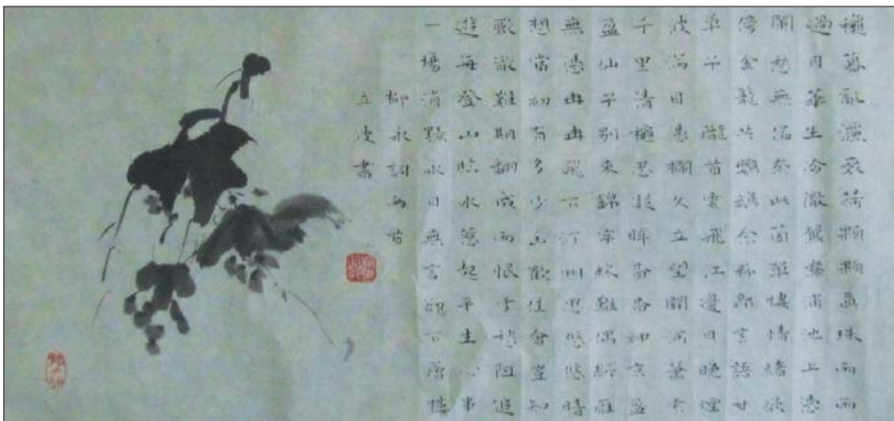 穐暮亂灑衰荷顆顆真珠雨雨
過月華生冷徹鴛鴦浦池上憑
闌愁無侶奈此箇單棲情緒却
傍金籠共鸚鵡念粉郎言語甘
草子 隴首雲飛江邊日晚煙
波滿目憑欄久立望關河蕭索
千里清穐忍凝眸杳杳神京盈
盈仙子別來錦字終難偶斷雁
無憑冉冉飛下汀州思悠悠暗
想當初有多少幽歡佳會豈知
聚散難期翻成雨恨雲愁阻追
遊每登山臨水惹起平生心事
一場消黯永日無言卻下層樓
柳永詞兩首
立 書